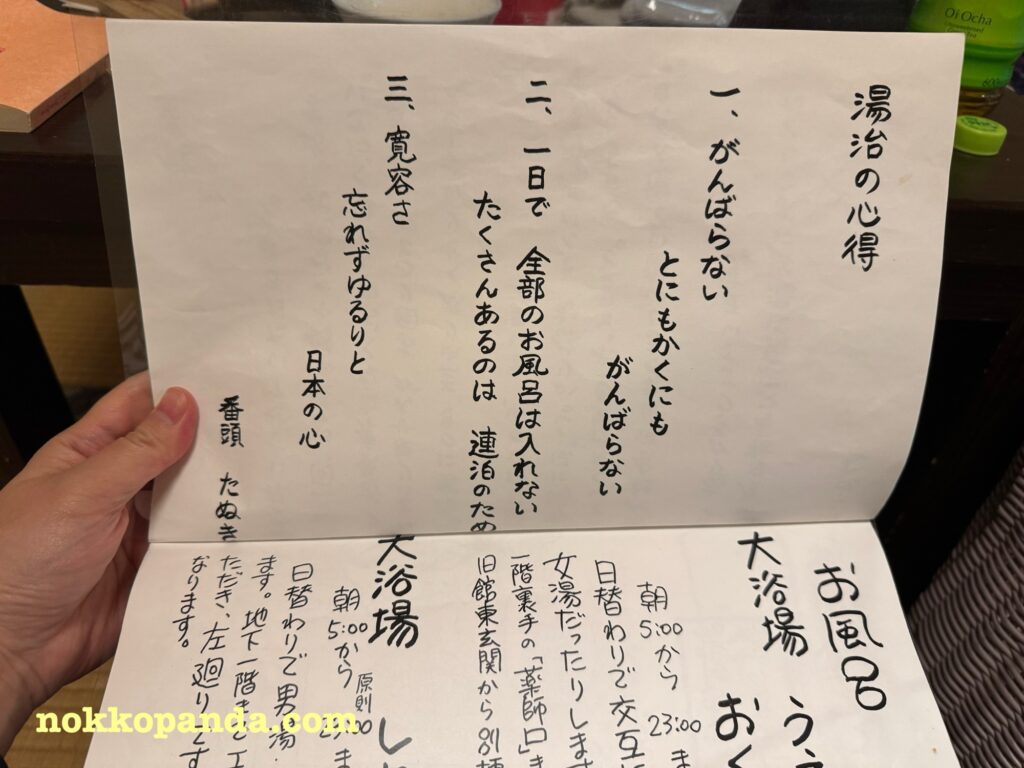 湯治の心得
一、がんばらない
とにもかくにも
がんばらない
二、一日で 全部のお風呂は入れない
たくさんあるのは 連泊のため
三、寛容さ
忘れずゆるりと
日本の心
番頭 たぬき
お風呂
大浴場 うえ
おく
朝5:00から 23:00ま
日替わりで交互に
女湯だったりします
一階裏手の「薬師口」き
旧館東玄関から別棟
大浴場 した
朝5:00から
原則
日替わりで男湯
ます。地下一階ま
ただき、左廻りです
なります。
Oi Ocha
nokkopanda.com